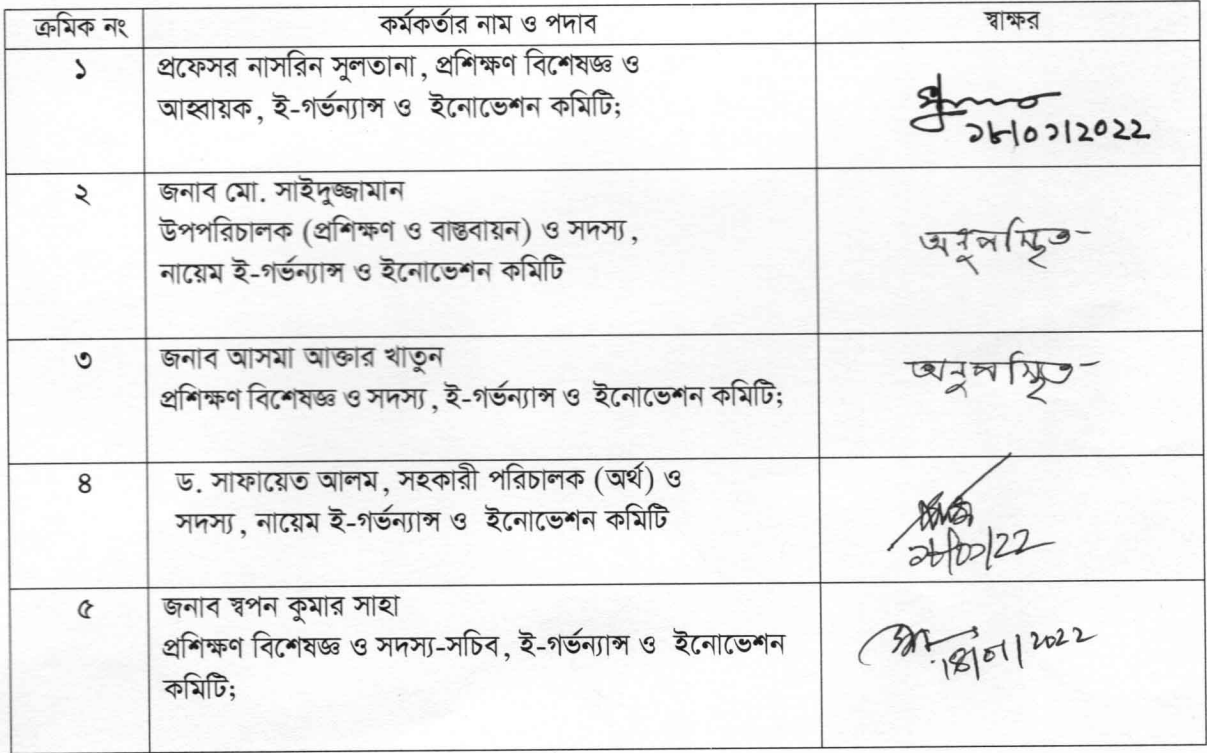 ক্রমিক নং কর্মকর্তার নাম ও পদাব স্বাক্ষর
১ প্রফেসর নাসরিন সুলতানা, প্রশিক্ষণ বিশেষজ্ঞ ও
আহ্বায়ক, ই-গর্ভন্যান্স ও ইনোভেশন কমিটি;
১৮/০১/২০২২
২ জনাব মো. সাইদুজ্জামান
উপপরিচালক (প্রশিক্ষণ ও বাস্তবায়ন) ও সদস্য,
নায়েম ই-গর্ভন্যান্স ও ইনোভেশন কমিটি
অনুপস্থিত
৩ জনাব আসমা আক্তার খাতুন
প্রশিক্ষণ বিশেষজ্ঞ ও সদস্য, ই-গর্ভন্যান্স ও ইনোভেশন কমিটি;
অনুপস্থিত
৪ ড. সাফায়েত আলম, সহকারী পরিচালক (অর্থ) ও
সদস্য, নায়েম ই-গর্ভন্যান্স ও ইনোভেশন কমিটি
১৮/০১/২২
৫ জনাব স্বপন কুমার সাহা
প্রশিক্ষণ বিশেষজ্ঞ ও সদস্য-সচিব, ই-গর্ভন্যান্স ও ইনোভেশন
কমিটি;
18/01/2022